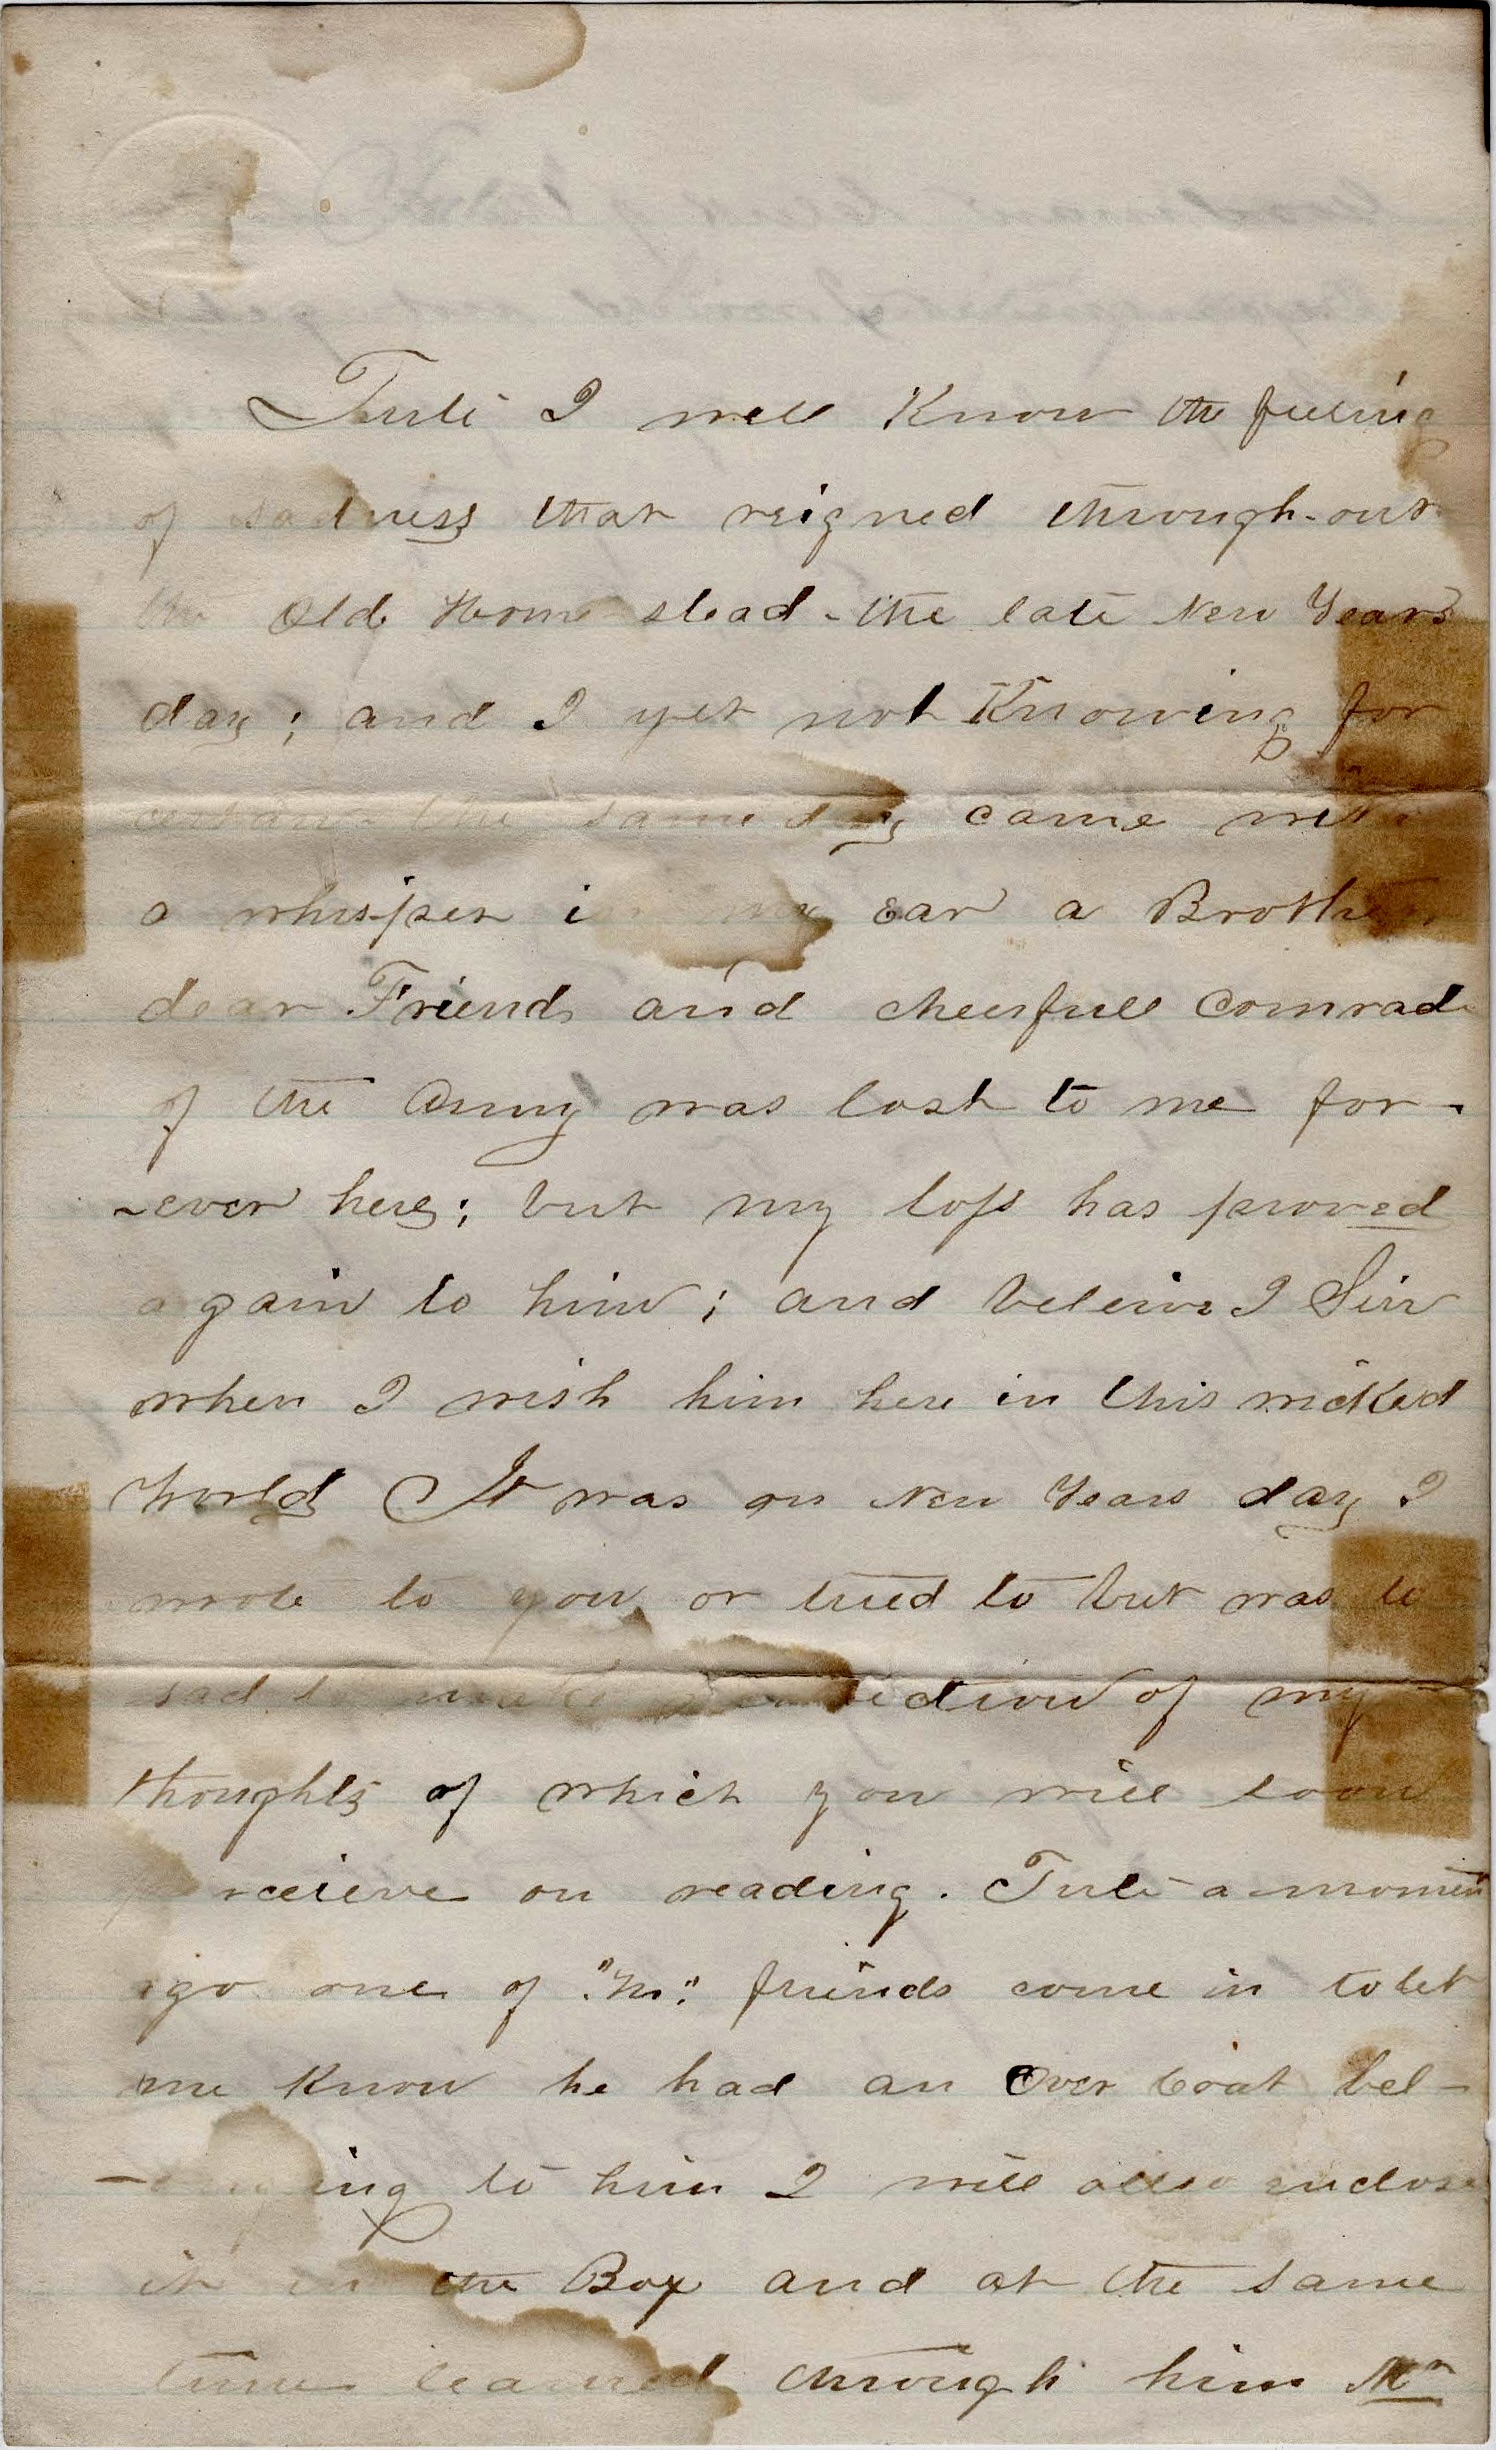 Tuli I well Know the feeling
of sadness that reigned through-out
the Old Home stead - the late New Years
day; and I yet not Knowing for
certain the same day came with
a whisper in my Ear a Brother
dear Friend and cheerfull Comrade
of the Army was lost to me for-
-ever here; but my loss has proved
a gain to him; and beleive I Sin
when I wish him here in this wicked
World It was on New Years day I
wrote to you or tried to but was to
sad to make of my
thoughts of which you will soon
receieve on reading. Tuli a moment
ago one of "M". friends come in to let
me Know he had an Over Coat bel-
-onging to him I will also enclose
it in the Box and at the same
time learned through him Mr